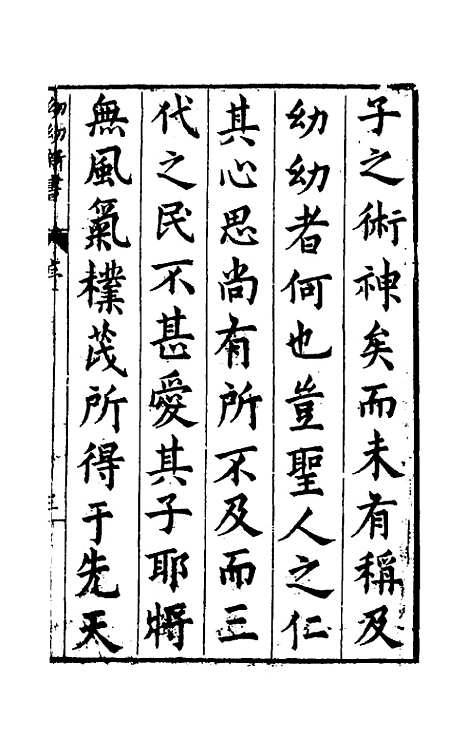 子之術神矣而未有稱及
幼幼者何也豈聖人之仁
其心思尚有所不及而三
代之民不甚愛其子耶將
無風氣樸茂所得于先天
幼幼新書
序